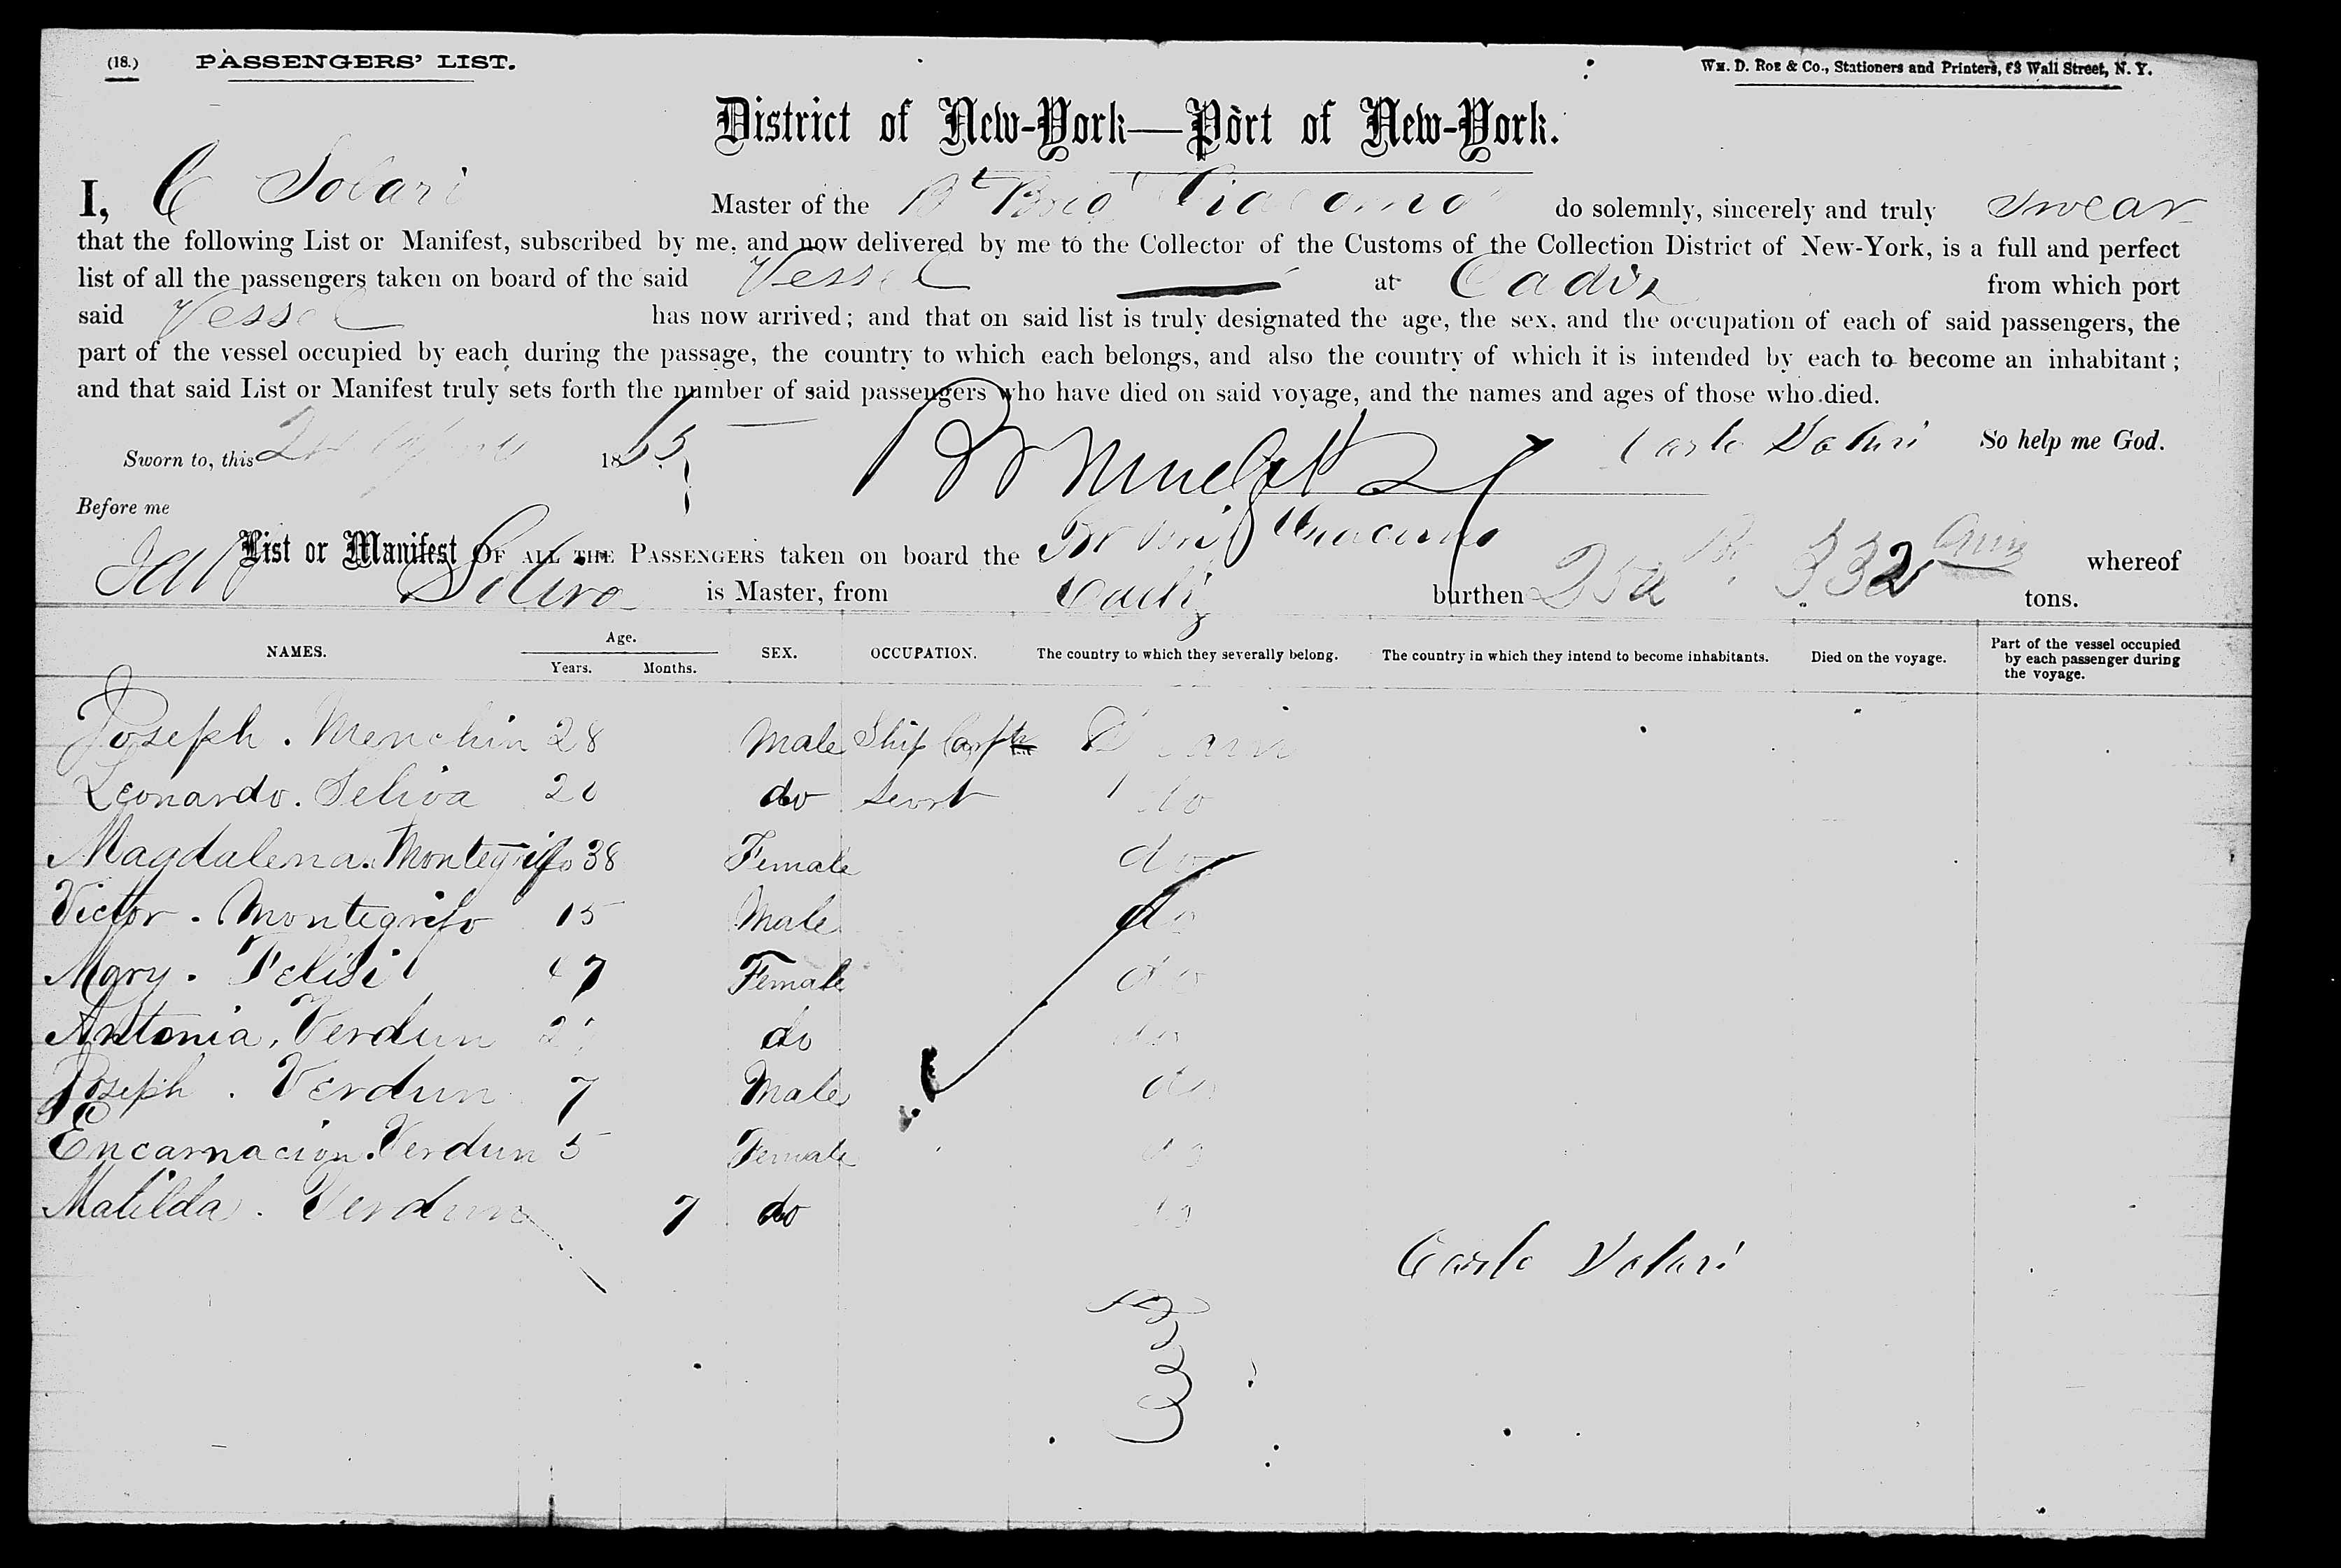 (18.) PASSENGERS' LIST. Wm. D. Roe & Co., Stationers and Printers, 83 Wall Street, N. Y.
District of New-York—Port of New-York.
I, C Solari Master of the Bt Brig Giacomo do solemnly, sincerely and truly swear
that the following List or Manifest, subscribed by me, and now delivered by me to the Collector of the Customs of the Collection District of New-York, is a full and perfect
list of all the passengers taken on board of the said Vessel at Cadiz from which port
said Vessel has now arrived; and that on said list is truly designated the age, the sex, and the occupation of each of said passengers, the
part of the vessel occupied by each during the passage, the country to which each belongs, and also the country of which it is intended by each to become an inhabitant;
and that said List or Manifest truly sets forth the number of said passengers who have died on said voyage, and the names and ages of those who died.
Sworn to, this 1865 Carlo Solari So help me God.
Before me
List or Manifest OF ALL THE PASSENGERS taken on board the Br Brig Giacomo whereof
is Master, from Cadiz burthen 332 tons.
NAMES. Age. Years. Months. SEX. OCCUPATION. The country to which they severally belong. The country in which they intend to become inhabitants. Died on the voyage. Part of the vessel occupied by each passenger during the voyage.
Joseph. Menchin 28 Male Ship Carptr Spain
Leonardo. Seliva 20 do Servt do
Magdalena. Montegrifo 38 Female do
Victor. Montegrifo 15 Male do
Mary. Felisi 47 Female do
Antonia. Verdun do do
Joseph. Verdun 7 Male do
Encarnacion. Verdun 5 Female do
Matilda. Verdun 7 do do
Carlo Solari